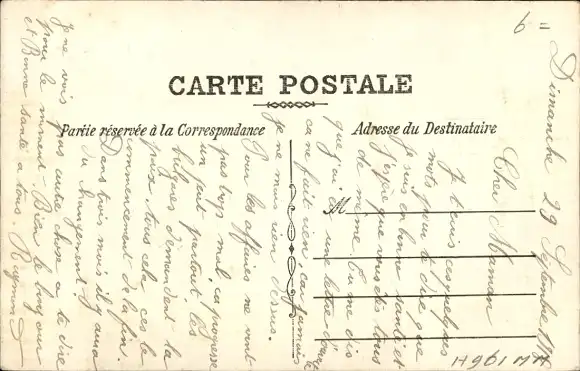 6 =
CARTE POSTALE
Partie réservée à la Correspondance
Adresse du Destinataire
M
Dimanche 29 Septembre 1918
Cher Maman
Je t'ecris ces quelques
mots pour te dire que
je suis en bonne santé et
j'espe que vous dès tous
de même. Tu me dis
que j'ai eu une lettre
ca ne fait rien car jamais
je ne mais rien dessus.
Pour les affaires ne vont
pas trop mal, ca progresse
un peut partout les
bulgares demandent la
paix, tous cela ces le
commencement de la fin.
Dans trois mois il y aura
du changement
Je ne vois pas autre chose a te dire
pour le moment. Bien le bonjour
et Bonne santé a tous.